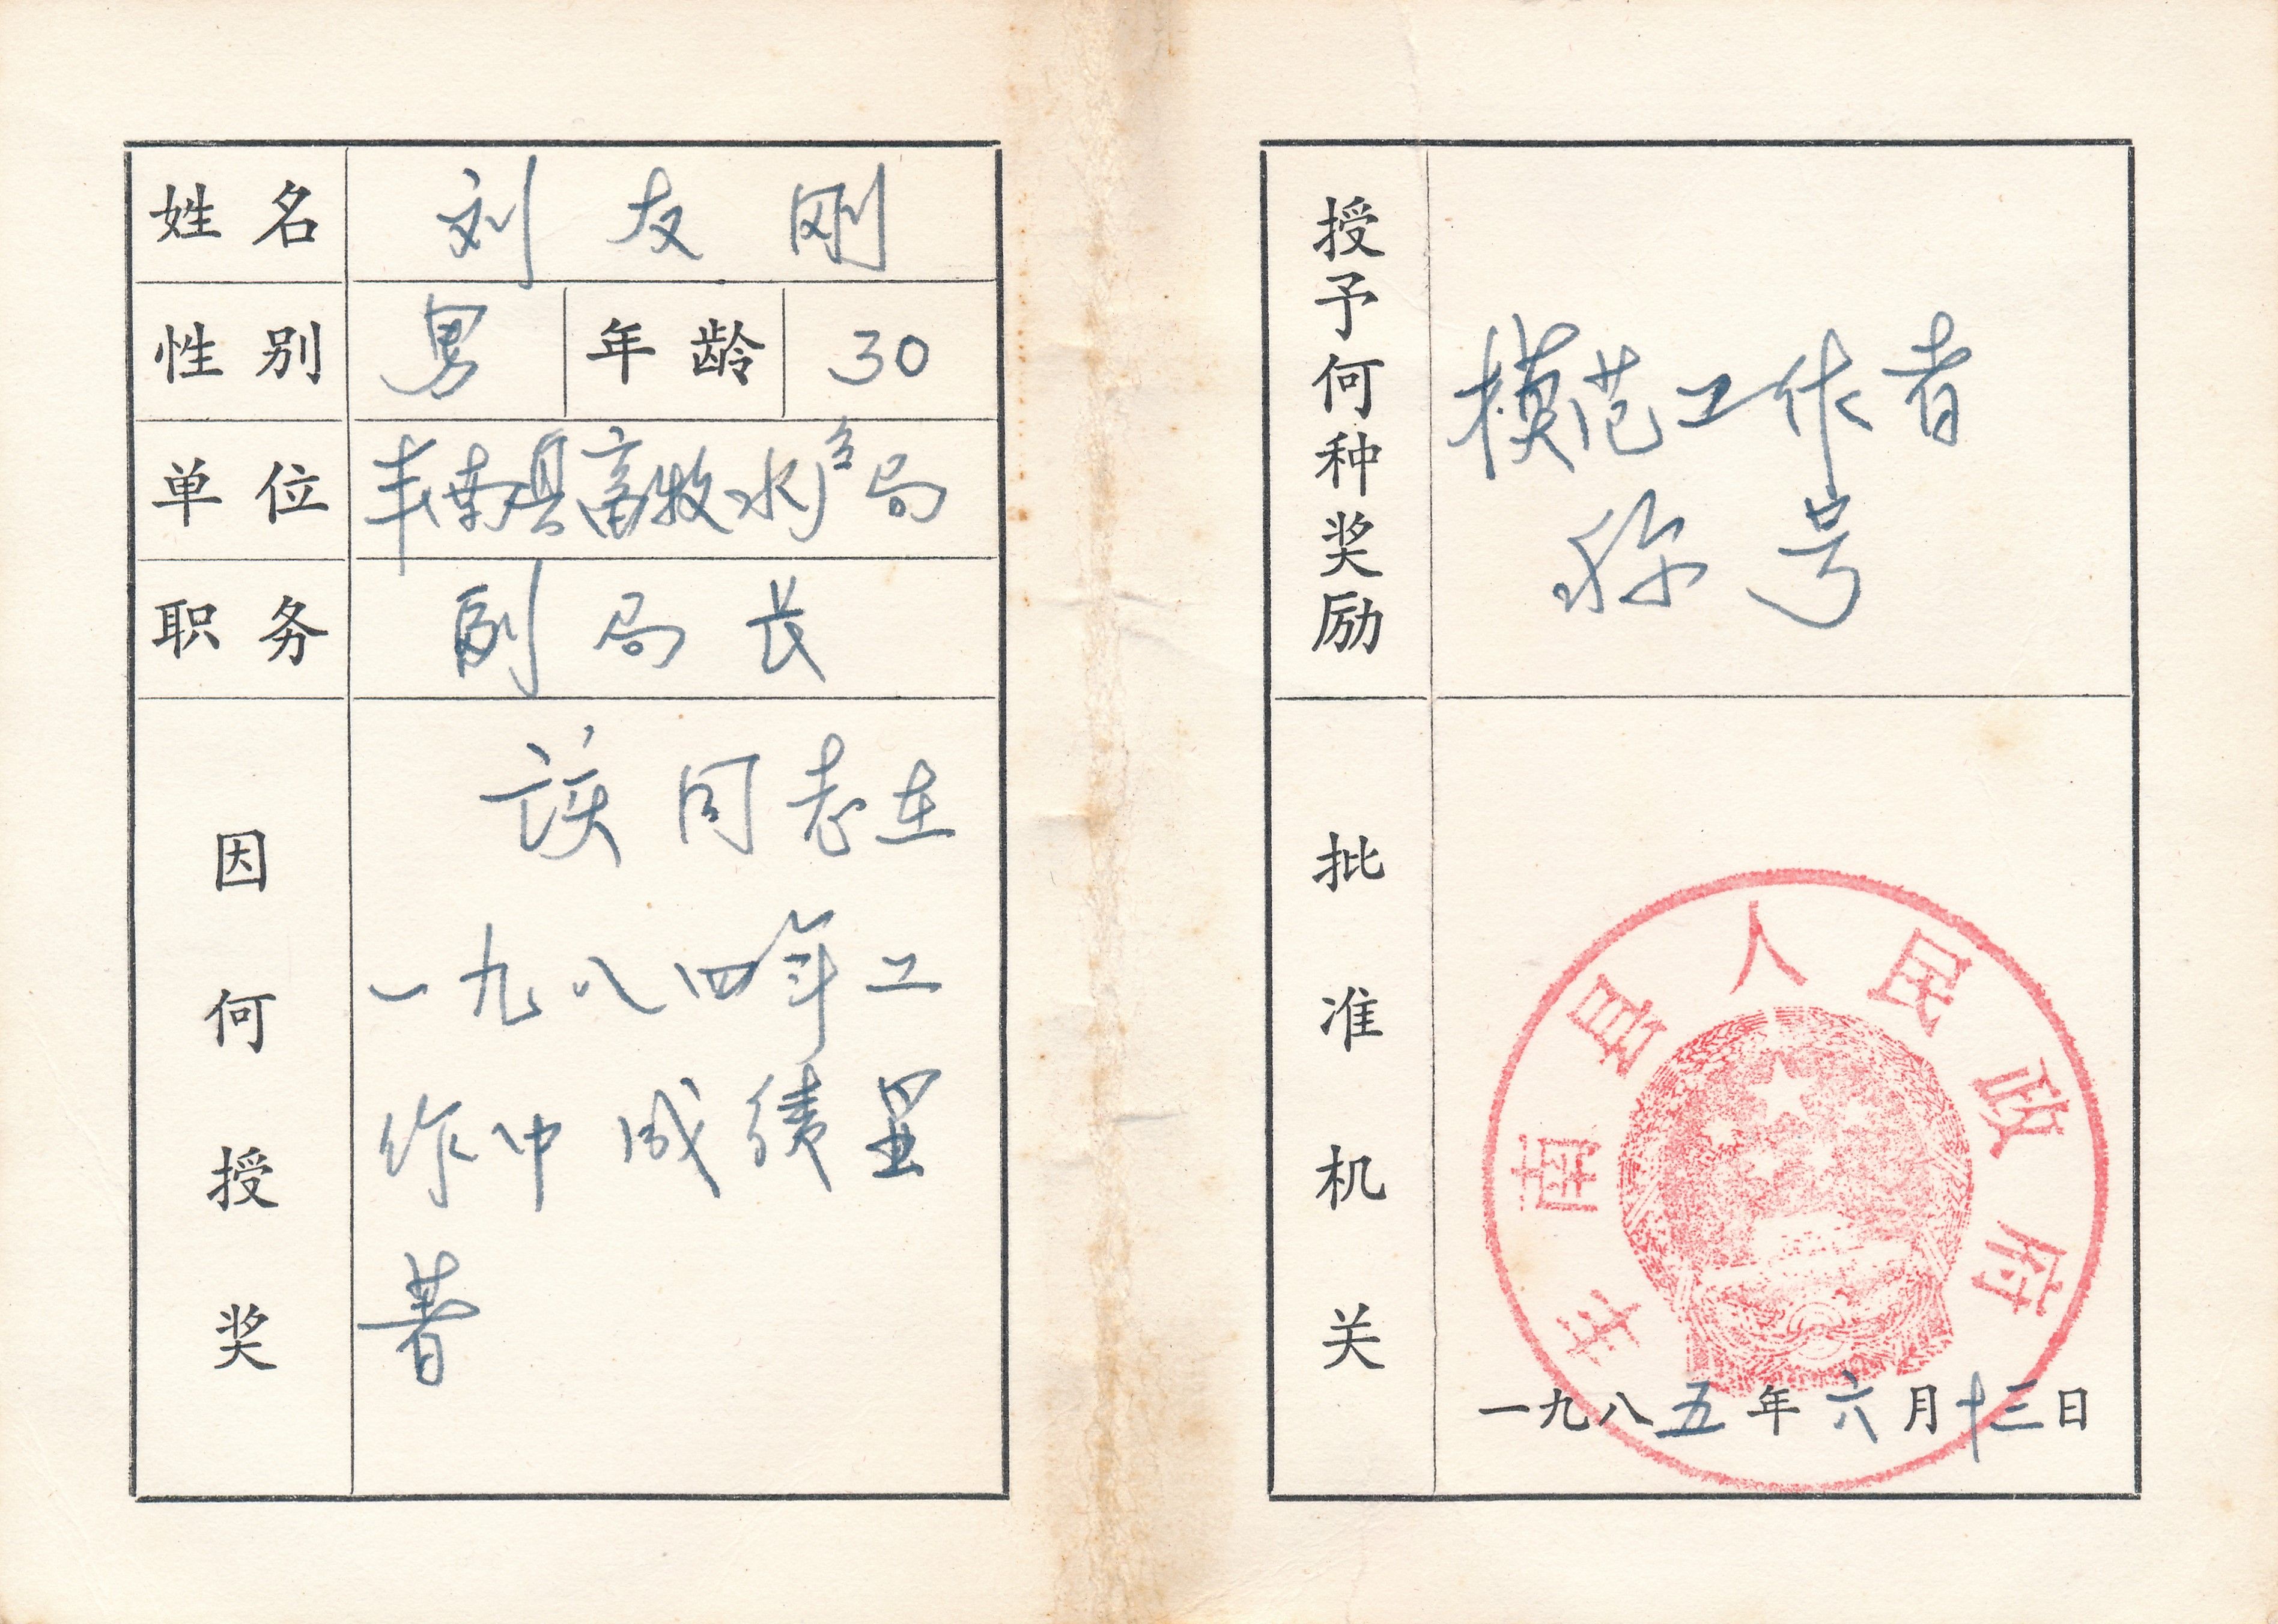 姓名 刘友刚
性别 男 年龄 30
单位 丰南县畜牧水产局
职务 副局长
因何授奖
该同志在
一九八四年工
作中成绩显
著
授予何种奖励
模范工作者
称号
批准机关
丰南县人民政府
一九八五年六月十三日